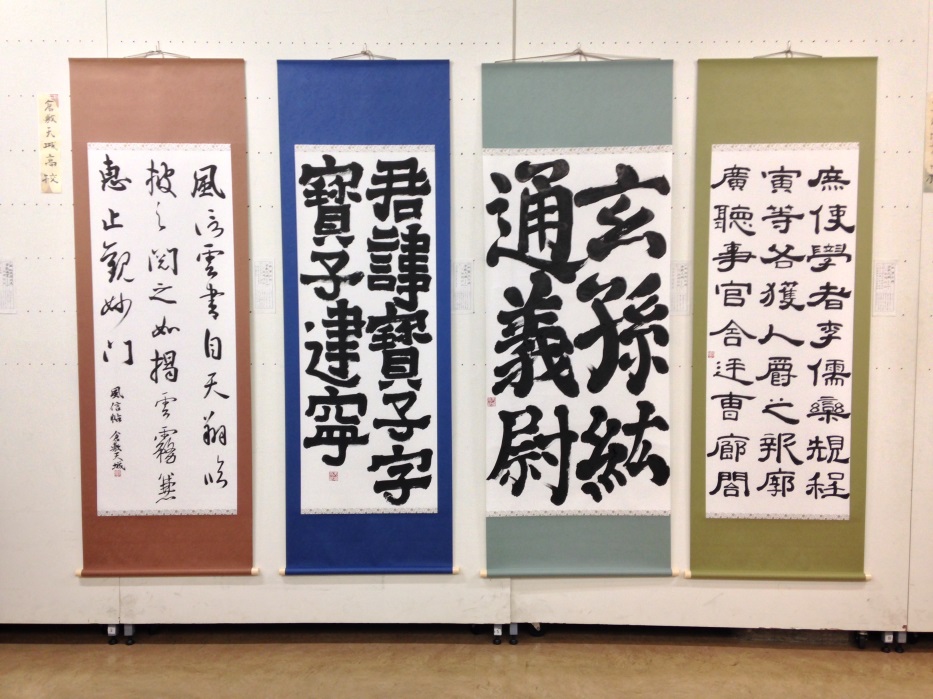 庶使學者李儒欒規程
寅等各獲人爵之報廓
廣聽事官舍廷曹廊閣
玄孫紘
通義尉
君諱寶子字
寶子建寧
風信雲書自天翔臨
披之閲之如揭雲霧兼
惠止觀妙門
風信帖 倉敷天城
倉敷天城高校